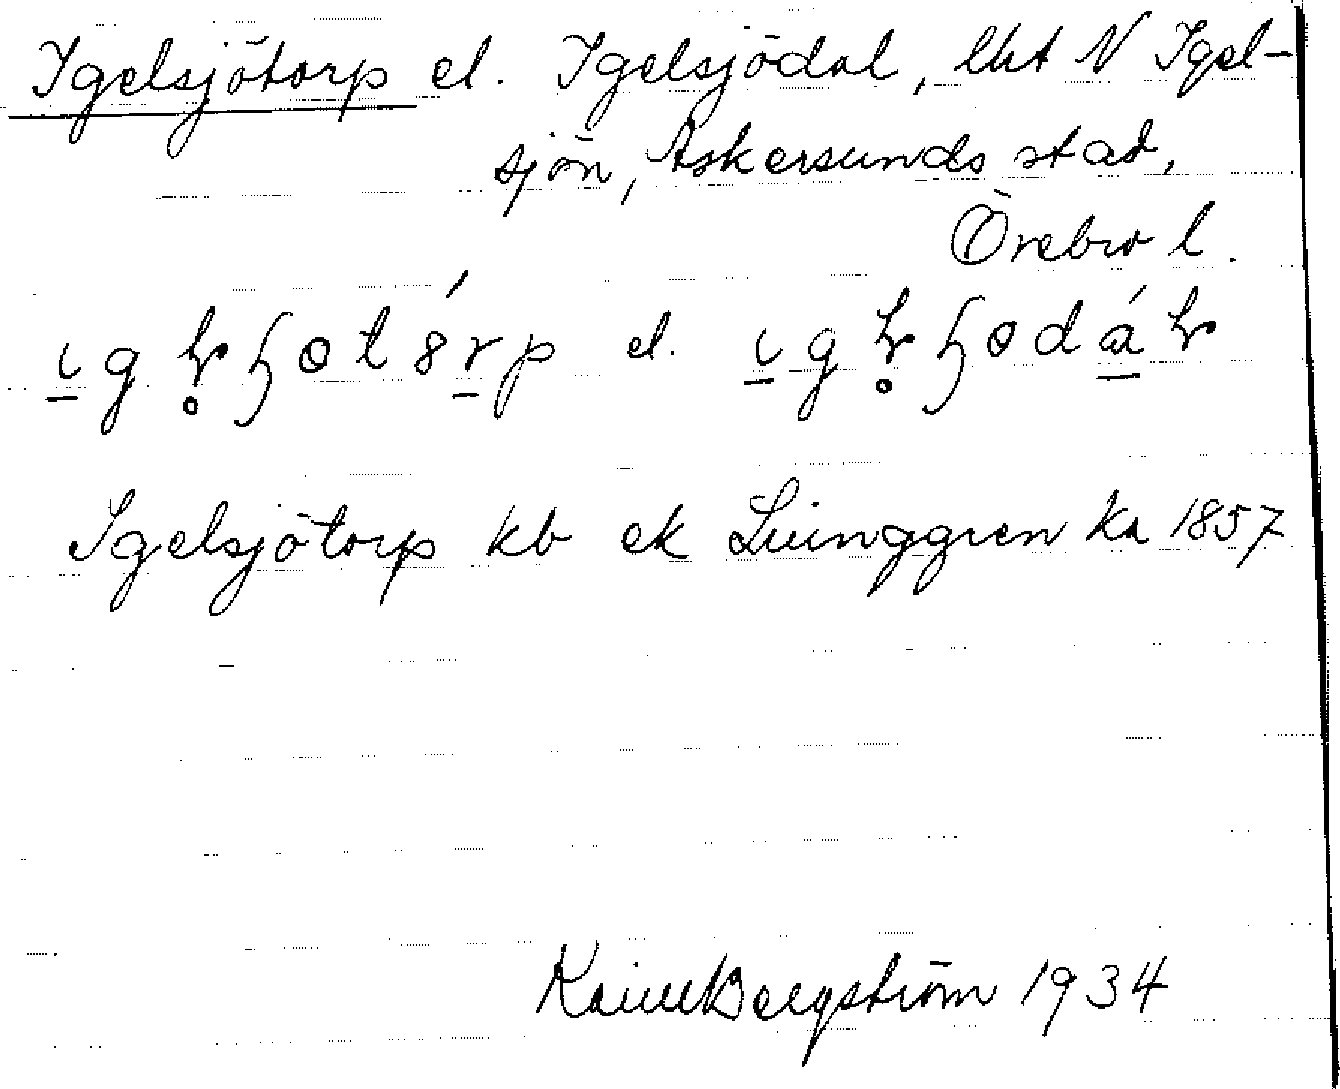 Igelsjötorp el. Igelsjödal, lht N Igel-
sjön, Askersunds stad,
Örebro l.
el.
Igelsjötorp kb ek Ljunggren ka 1857
Bergström 1934